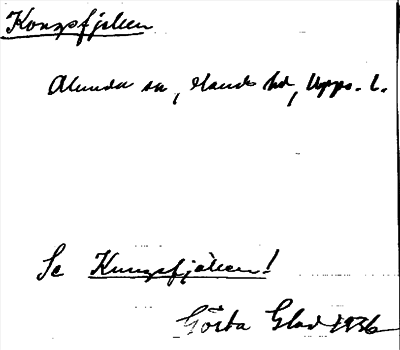 Kongsfjällen
Alunda sn, Olands hd, Upps. l.
Se Kungsfjällen!
Gösta Glad 1936